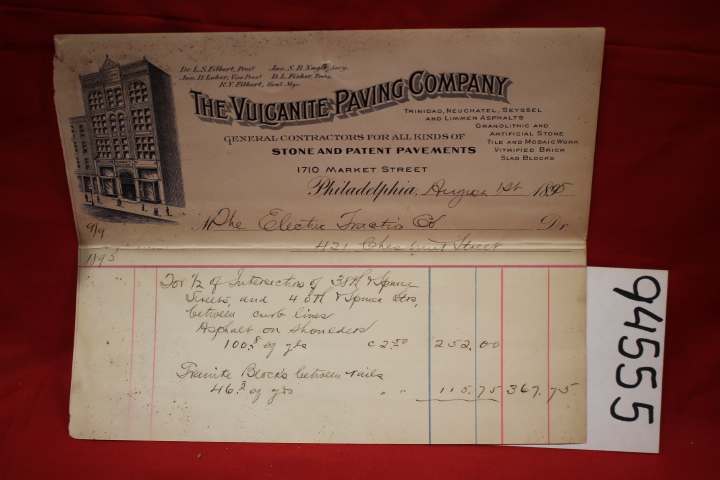 Dr. L.S. Filbert, Prest. Jas. S. B. Nagle, Secy.
Jno. D. Laber, Vice Prest D. L. Fisher, Treas.
R.Y. Filbert, Genl. Mgr.
THE VULCANITE PAVING COMPANY
TRINIDAD, NEUCHATEL, SEYSSEL
AND LIMMER ASPHALTS
GRANOLITHIC AND
ARTIFICIAL STONE
TILE AND MOSAIC WORK
VITRIFIED BRICK
SLAG BLOCKS
GENERAL CONTRACTORS FOR ALL KINDS OF
STONE AND PATENT PAVEMENTS
1710 MARKET STREET
Philadelphia, August 1st 1895
M The Electric Traction Co Dr.
9/9
421 Chestnut Street
1895
For 1/2 of Intersection of 38th & Spruce
Streets, and 40th & Spruce Strs,
between curb lines
Asphalt on Shoulders
100.8 sq yds @ 2.50 252.00
Granite Blocks between rails
46.3 sq yds " " 115.75 367.75
94555